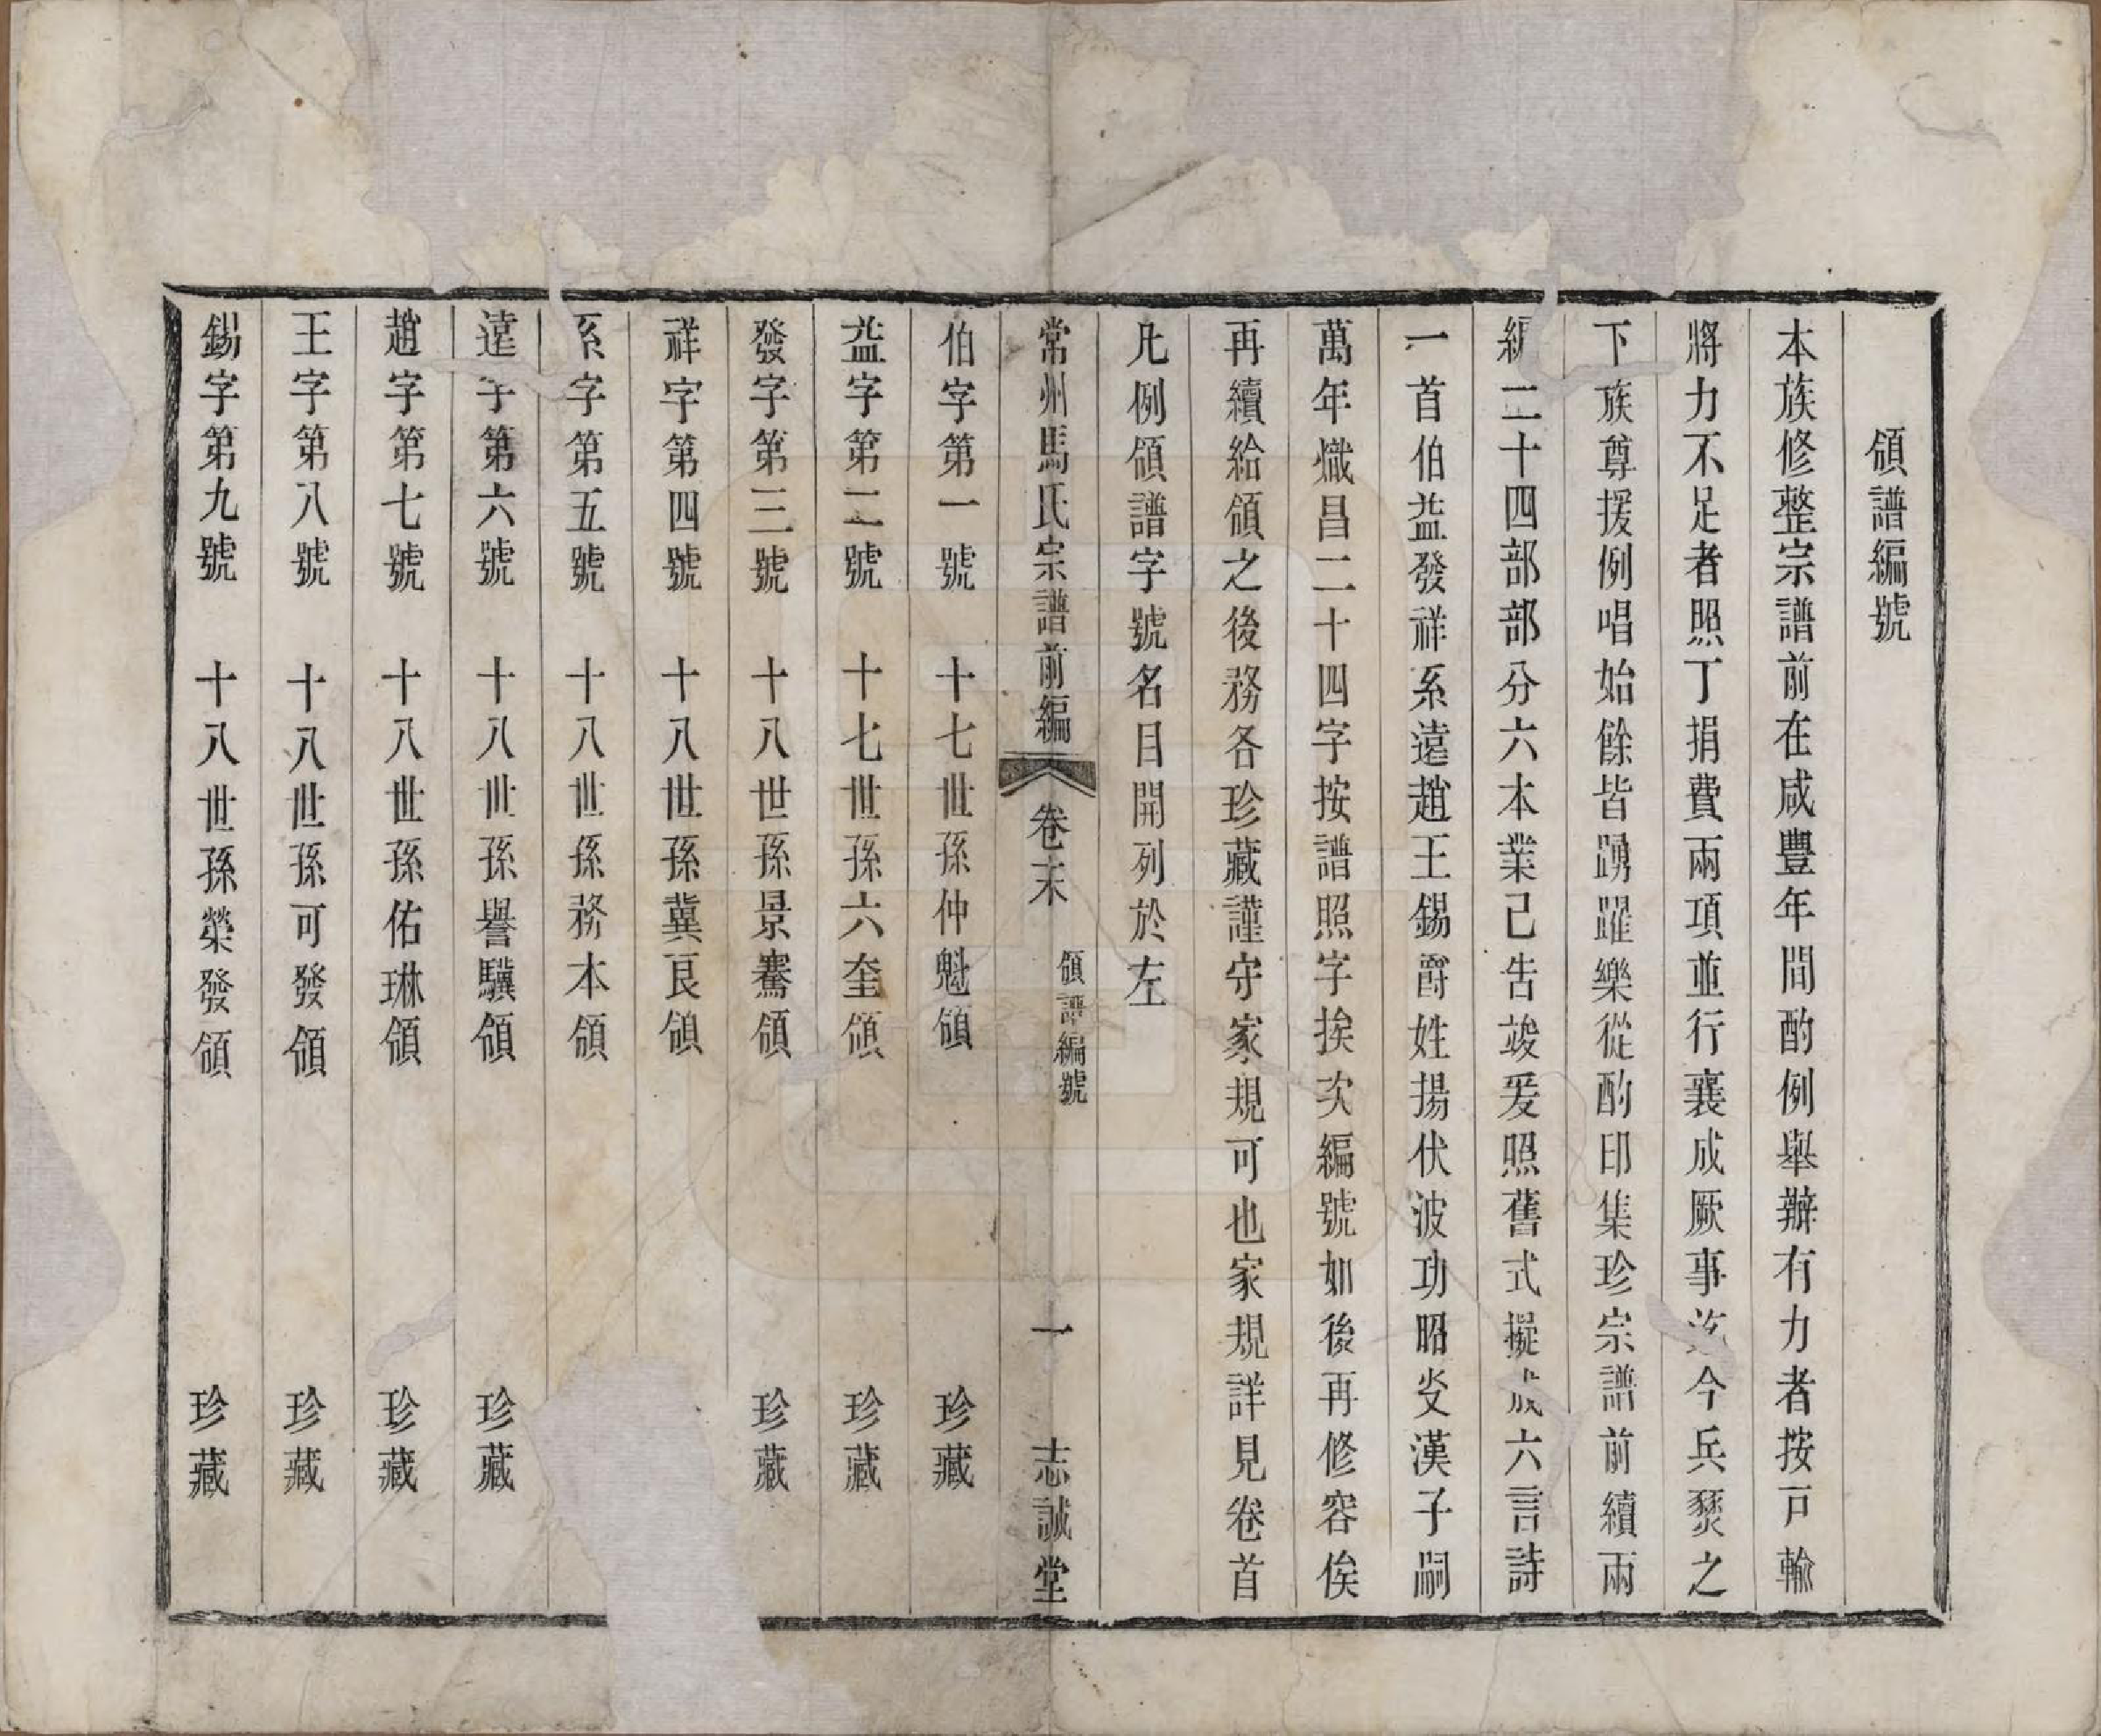 領譜編號
本族修整宗譜前在咸豐年間酌例舉辦有力者按戸輸
將力不足者照丁捐費兩項並行襄成厥事迄今兵燹之
下族尊援例唱始餘皆踴躍樂從酌印集珍宗譜前續兩
編二十四部部分六本業己告竣爰照舊式擬成六言詩
一首伯益發祥系遠趙王錫爵姓揚伏波功昭炎漢子嗣
萬年熾昌二十四字按譜照字挨次編號如後再修容俟
再續給領之後務各珍藏謹守家規可也家規詳見卷首
凡例領譜字號名目開列於左
常州馬氏宗譜前編 卷末 領譜編號 一 志誠堂
伯字第一號 十七世孫仲魁領 珍藏
益字第二號 十七世孫六奎領 珍藏
發字第三號 十八世孫景騫領 珍藏
祥字第四號 十八世孫冀良領
系字第五號 十八世孫務本領
遠字第六號 十八世孫譽驥領 珍藏
趙字第七號 十八世孫佑琳領 珍藏
王字第八號 十八世孫可發領 珍藏
錫字第九號 十八世孫榮發領 珍藏